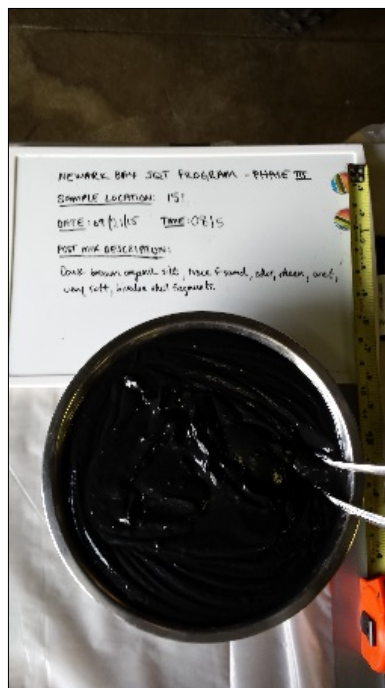 NEWARK BAY SQT PROGRAM - PHASE III
SAMPLE LOCATION: 151
DATE: 09/21/15 TIME: 0815
POST MIX DESCRIPTION:
Dark brown organic silt, trace f sand, odor, sheen, wet,
very soft, bivalve shell fragments.